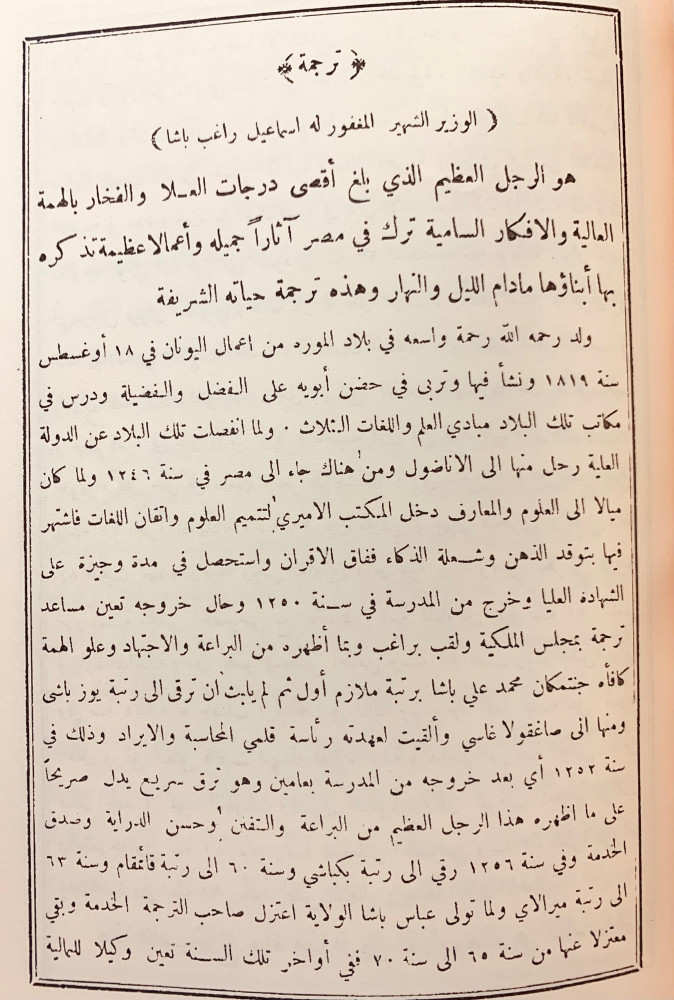 ﴿ ترجمة ﴾
( الوزير الشهير المغفور له اسماعيل راغب باشا )
هو الرجل العظيم الذي بلغ أقصى درجات العـلا والفخار بالهمة
العالية والافكار السامية ترك في مصر آثاراً جميله وأعمالا عظيمة تذكره
بها أبناؤها مادام الليل والنهار وهذه ترجمة حياته الشريفة
ولد رحمه الله رحمة واسعه في بلاد الموره من اعمال اليونان في ١٨ أوغسطس
سنة ١٨١٩ ونشأ فيها وتربى في حضن أبويه على الفضل والفضيلة ودرس في
مكاتب تلك البلاد مبادي العلم واللغات الثلاث ٠ ولما انفصلت تلك البلاد عن الدولة
العلية رحل منها الى الاناضول ومن هناك جاء الى مصر في سنة ١٢٤٦ ولما كان
ميالا الى العلوم والمعارف دخل المكتب الاميري لتتميم العلوم واتقان اللغات فاشتهر
فيها بتوقد الذهن وشـعلة الذكاء ففاق الاقران واستحصل في مدة وجيزة على
الشهاده العليا وخرج من المدرسة في سـنة ١٢٥٠ وحال خروجه تعين مساعد
ترجمة بمجلس الملكية ولقب براغب وبما أظهره من البراعة والاجتهاد وعلو الهمة
كافأه جنتمكان محمد علي باشا برتبة ملازم أول ثم لم يلبث ان ترقى الى رتبة يوز باشى
ومنها الى صاغقولا غاسي وألقيت لعهدته رئاسة قلمي المحاسبة والايراد وذلك في
سنة ١٢٥٢ أي بعد خروجه من المدرسة بعامين وهو ترق سريع يدل صريحاً
على ما اظهره هذا الرجل العظيم من البراعة والتفنن وحسن الدراية وصدق
الخدمة وفي سنة ١٢٥٦ رقي الى رتبة بكباشي وسنة ٦٠ الى رتبة قائمقام وسنة ٦٣
الى رتبة ميرالاي ولما تولى عباس باشا الولاية اعتزل صاحب الترجمة الخدمة وبقي
معتزلا عنها من سنة ٦٥ الى سنة ٧٠ ففي أواخر تلك السـنة تعين وكيلا للمالية